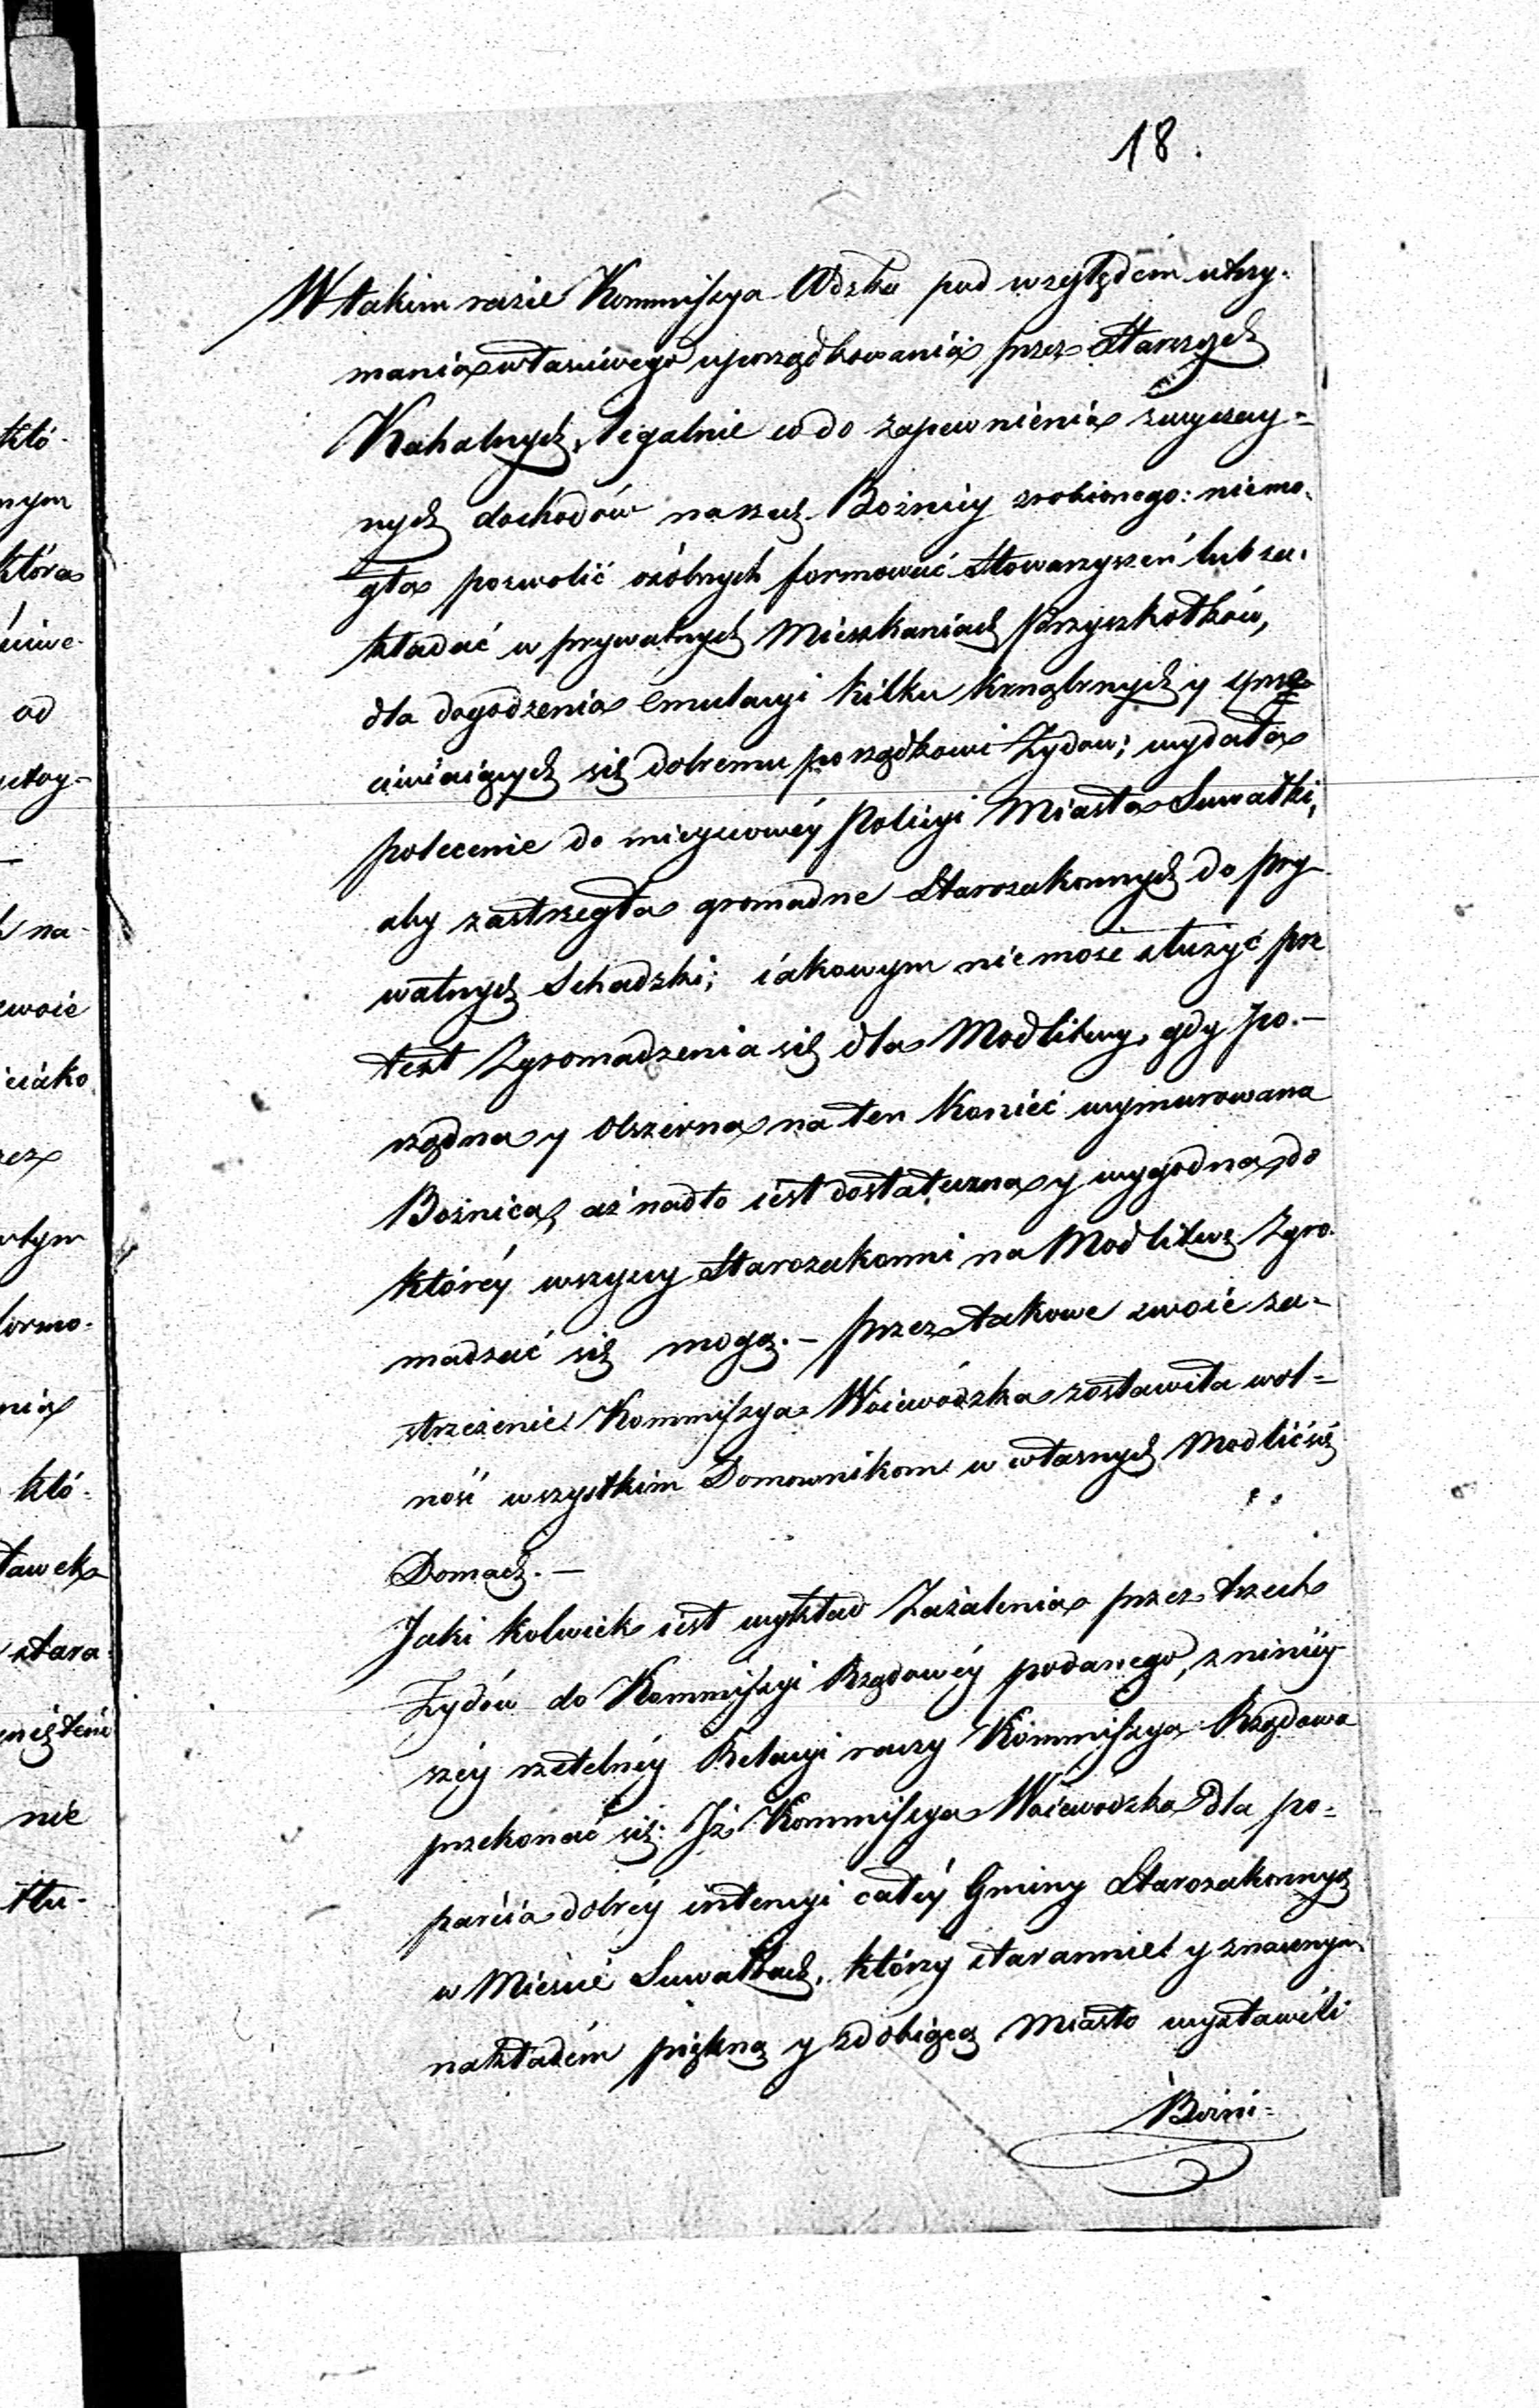 18.
W takim razie Kommissya Wdzka pod względem utrzy-
mania właściwego uporządkowania przez Starszych
Kahalnych, legalnie co do zapewnienia zwyczay=
nych dochodów na rzecz Bożnicy zrobionego: niemo-
gła pozwolić osóbnych formować Stowarzyszeń lub za-
kładać w prywatnych Mieszkaniach Przyszkołków,
dla dogodzenia emulacyi kilku krnąbrnych y sprze
ciwiaiących się dobremu porządkowi Żydow; wydała
polecenie do mieyscowéy Policyi Miasta Suwałki,
aby zastrzegła gromadne Starozakonnych do pry-
watnych Schadzki; iakowym nie może służyć pre
text Zgromadzenia się dla Modlitwy, gdy po.-
rządna y obszerna na ten koniec wymurowana
Bożnica, aż nadto iest dostateczna y wygodna, do
któréy wszyscy Starozakonni na Modlitwę Zgro-
madzać się mogą.- Przez takowe swoie za-
strzeżenie Kommissya Woiewódzka zostawiła wol=
ność wszystkim Domownikom w własnych Modlić się
Domach.-
Jaki kolwiek iest wykład Zażalenia przez trzech
Żydów do Kommissyi Rządowéy podanego, z niniey
széy rzetelnéy Relacyi raczy Kommissya Rządowa
przekonać się: Iż Kommissya Woiewodzka dla po=
parcia dobréy intencyi całéy Gminy Starozakonnych
w Mieście Suwałkach, którzy starannie y znacznym
nakładem piękną y zdobiącą Miasto wystawili
Bożni=
któ-
nym
która
ściwe-
od
na-
swoie
iako
rzez
tym
formo-
nia
któ-
ławek
stara-
nie
tłu-